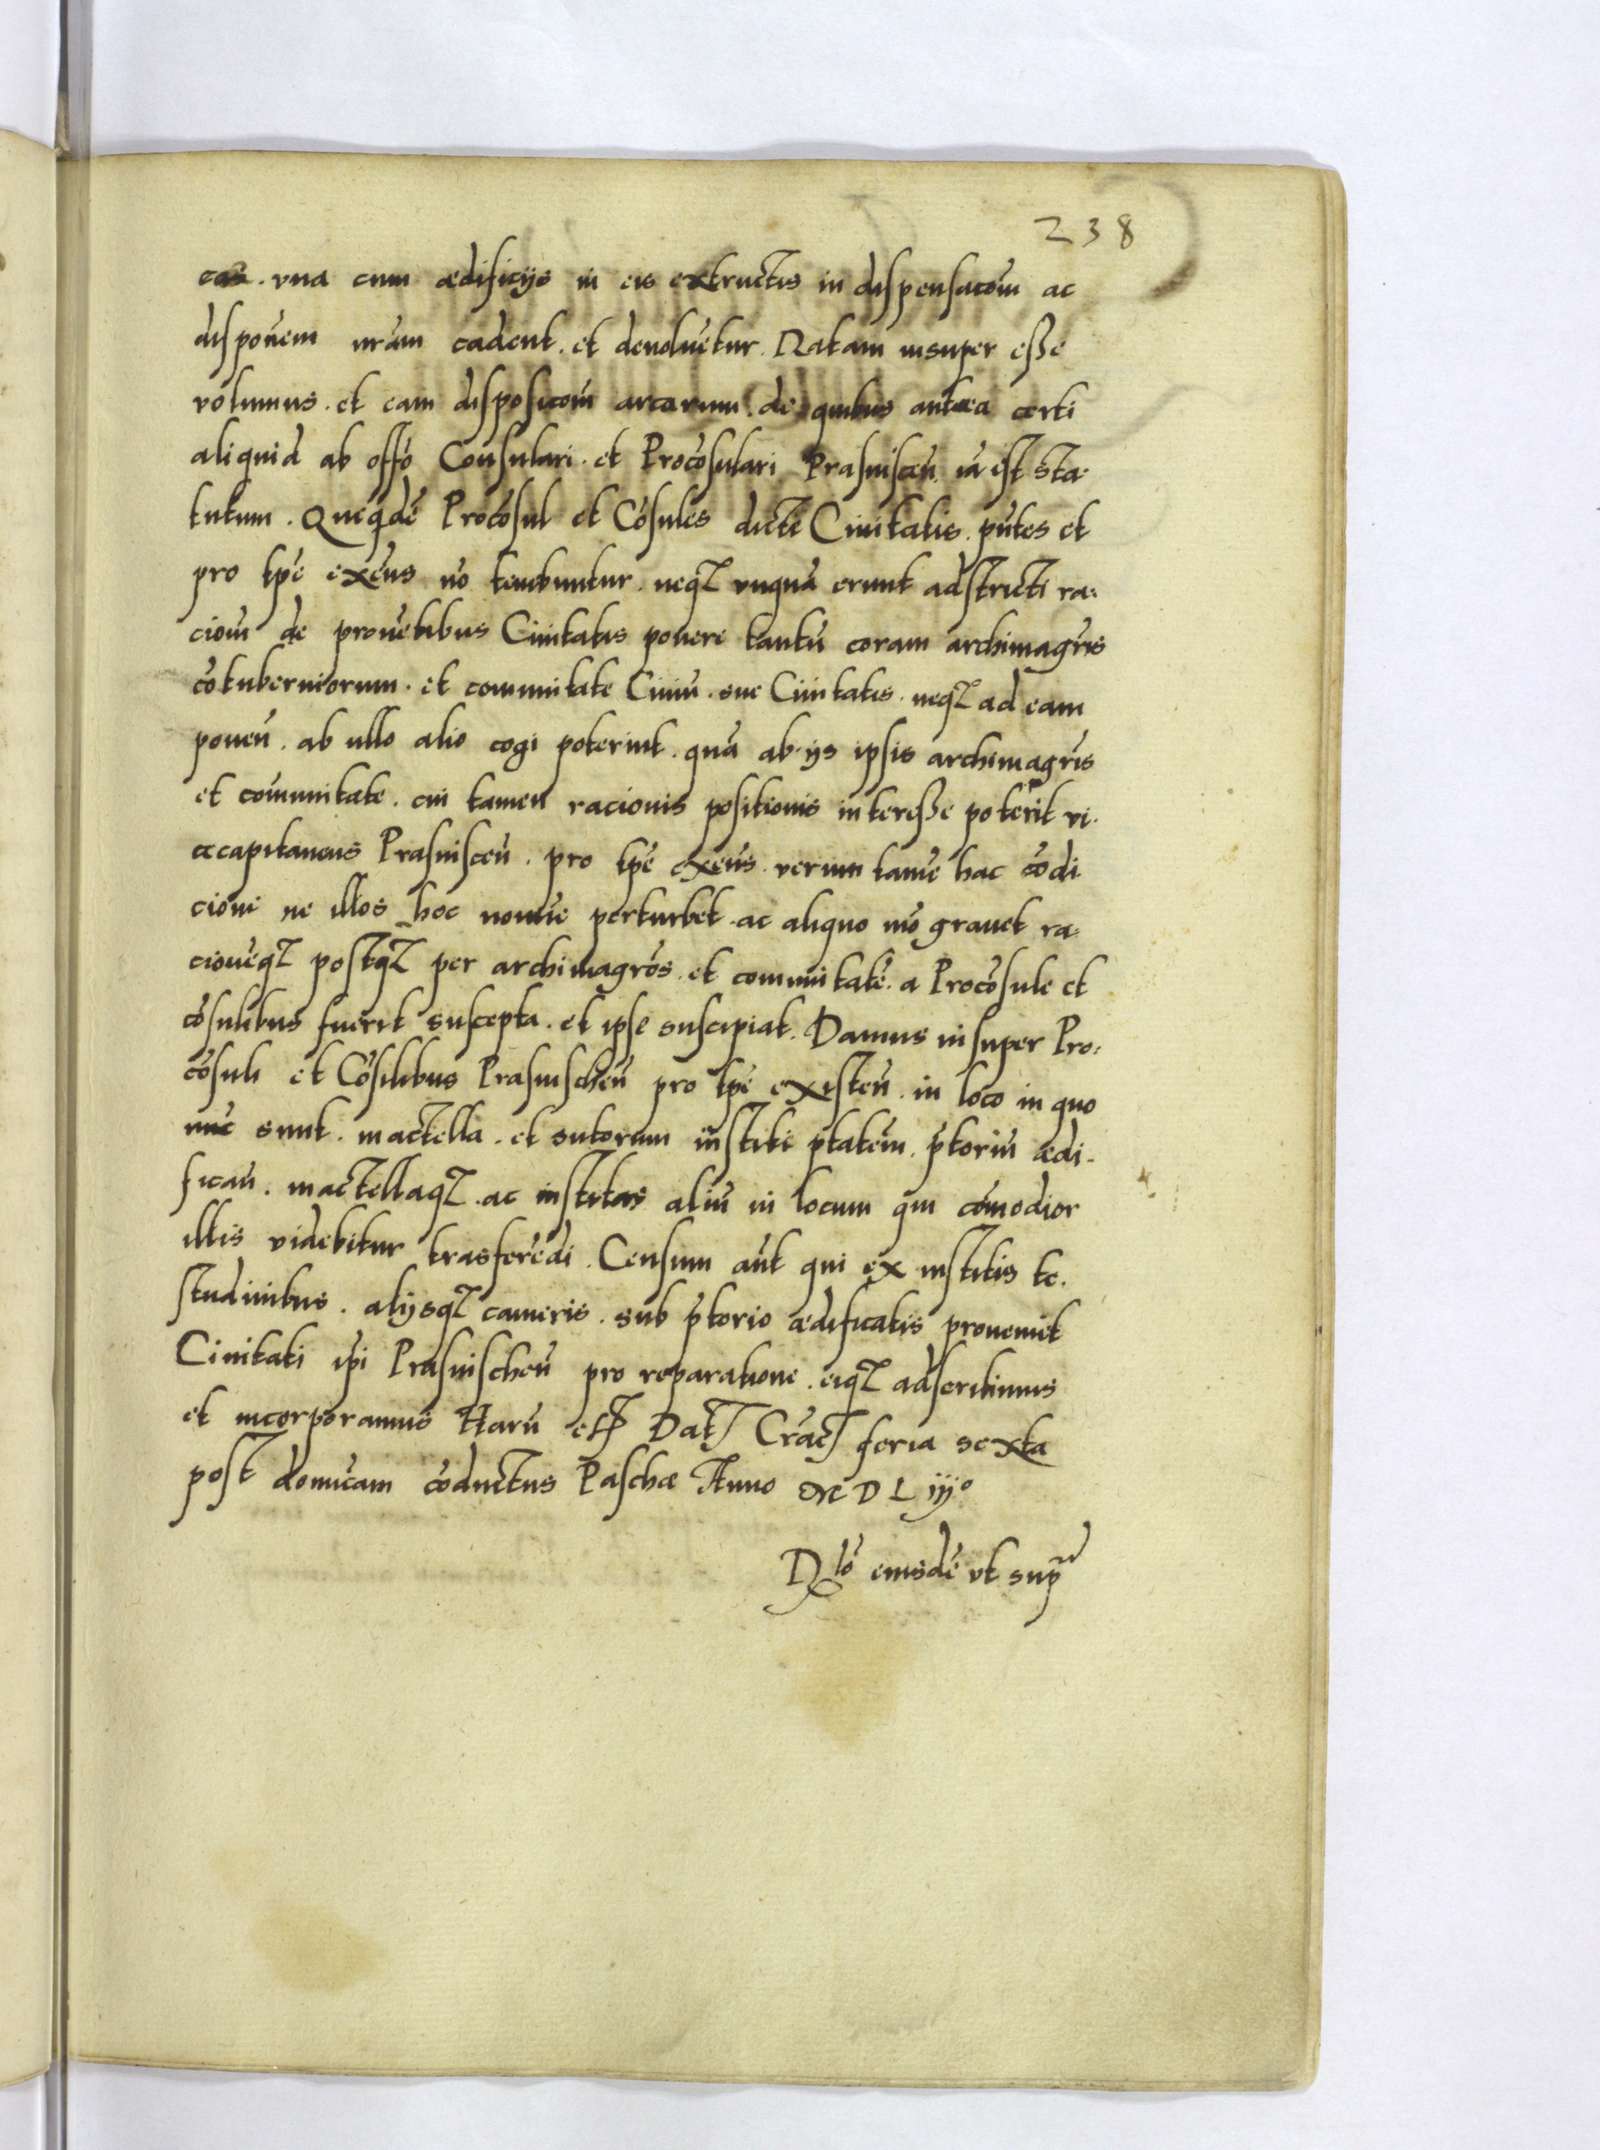 238
cas. vna cum ædificijs in eis extructis in dispensacōm ac
disponem nrām cadent. et deuoluētur. Ratam insuper eße
volumus. et eam disposicōm arearum. de quibus antea certi
aliquid ab offō Consulari. et Procōsulari Prasniscēn. iā est sta-
tutum. Queqdē Procōsul et Cōsules dicte Ciuitatis. pn̄tes et
pro tpe exens nō tenebuntur. neqꝫ vnquā erunt adstricti ra-
ciōm de prouētibus Ciuitatis ponere tantū coram archimagr̄is
cōtuberniorum. et comunitate Ciuiū. sue Ciuitatis. neqꝫ ad eam
ponēn. ab ullo alio cogi poterint. quā ab ijs ipsis archimagr̄is
et cōmunitate. cui tamen racionis positionis intereße poterit vi-
cecapitaneus Prasniscēn. pro tpe exēns. verum tamē hac cōdi
cione ne illos hoc nomīe perturbet. ac aliquo mō grauet ra-
cionēqꝫ postqꝫ per archimagrōs. et comunitatē. a Procōsule et
cōsulibus fuerit suscepta. et ipse suscipiat. Damus insuper Pro-
cōsuli et Cōsulibus Prasnischēn pro tpe existēn. in loco in quo
nūc sunt. mactella. et sutorum institē ptatem. pt̄oriū ædi-
ficān. mactellaqꝫ. ac institas aliū in locum qui cōmodior
illis videbitur trāsferēdi. Censum aūt qui ex institis te-
studinibus. alijsqꝫ cameris. sub pt̄orio ædificatis proueniet
Ciuitati ipi Prasnischēn pro reparatione. eiqꝫ adscribimus
et incorporamus Harū etc̄ Datꝭ Cracꝭ feria sexta
post domīcam cōductus Paschæ Anno MDLiijº
Rlō eiusdē vt supr̄